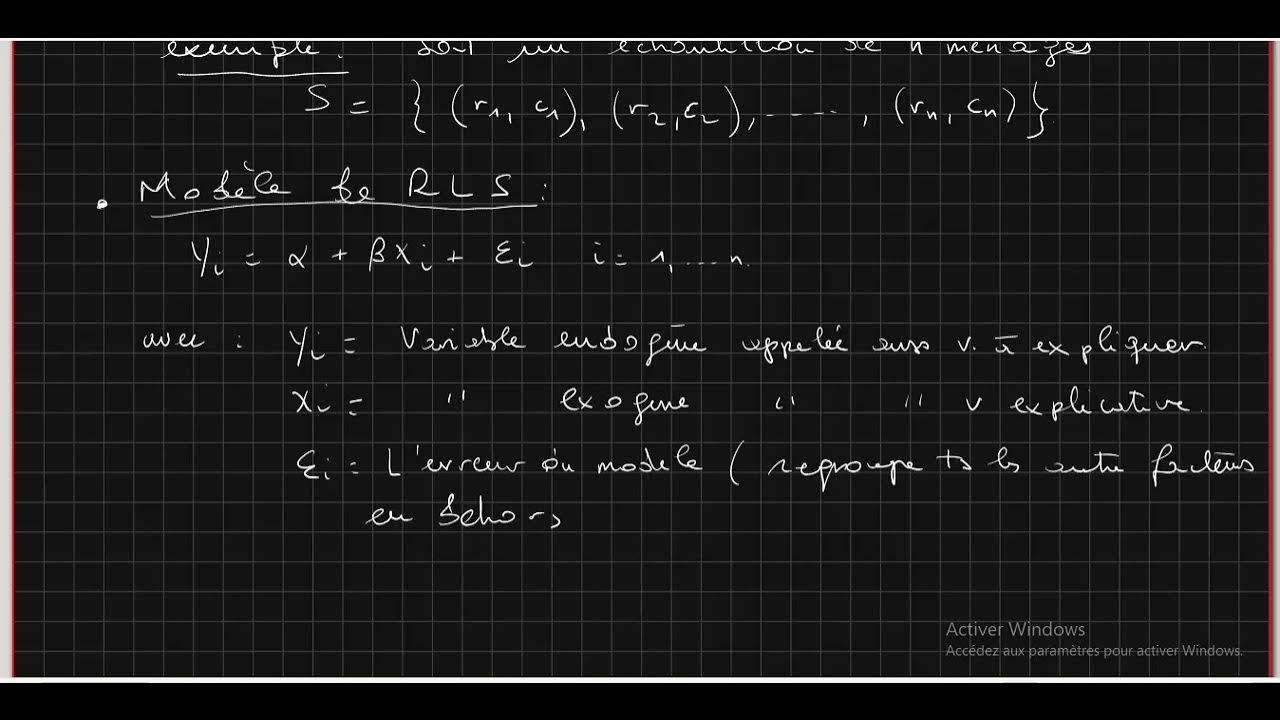 exemple : soit un échantillon de n ménages
S = { (r1, c1), (r2, c2), ....., (rn, cn) }
. Modèle de RLS :
Yi = α + βxi + εi i = 1, ... n.
avec : Yi = Variable endogène appelée aussi v. à expliquer.
xi = " exogene " " v explicative.
εi = L'erreur du modele ( regroupe ts les autre facteurs
en dehors
Activer Windows
Accédez aux paramètres pour activer Windows.